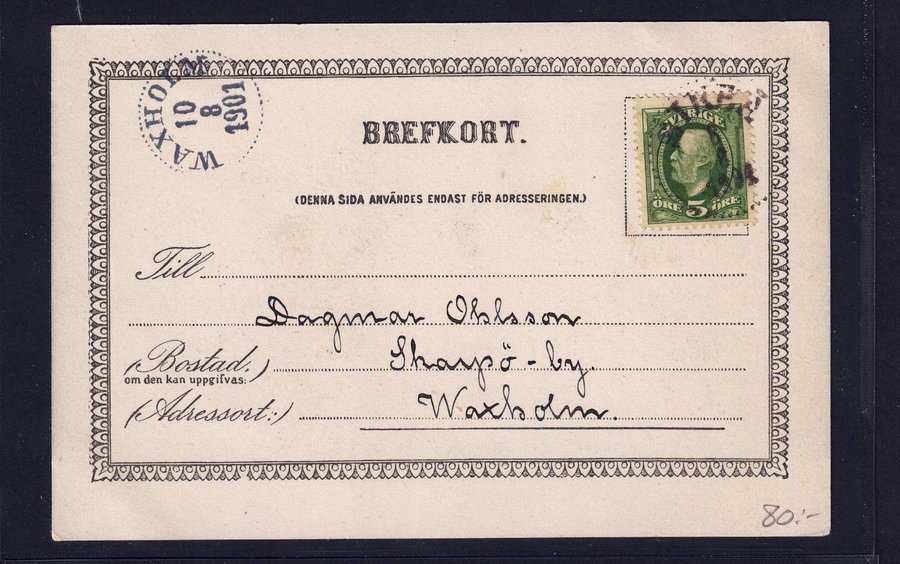 WAXHOLM
10
8
1901
BREFKORT.
SVERIGE
ÖRE 5 ÖRE
(DENNA SIDA ANVÄNDES ENDAST FÖR ADRESSERINGEN.)
Till
Dagmar Ohlsson
(Bostad.) Skarpö-by.
om den kan uppgifvas:
(Adressort:) Waxholm.
80:-